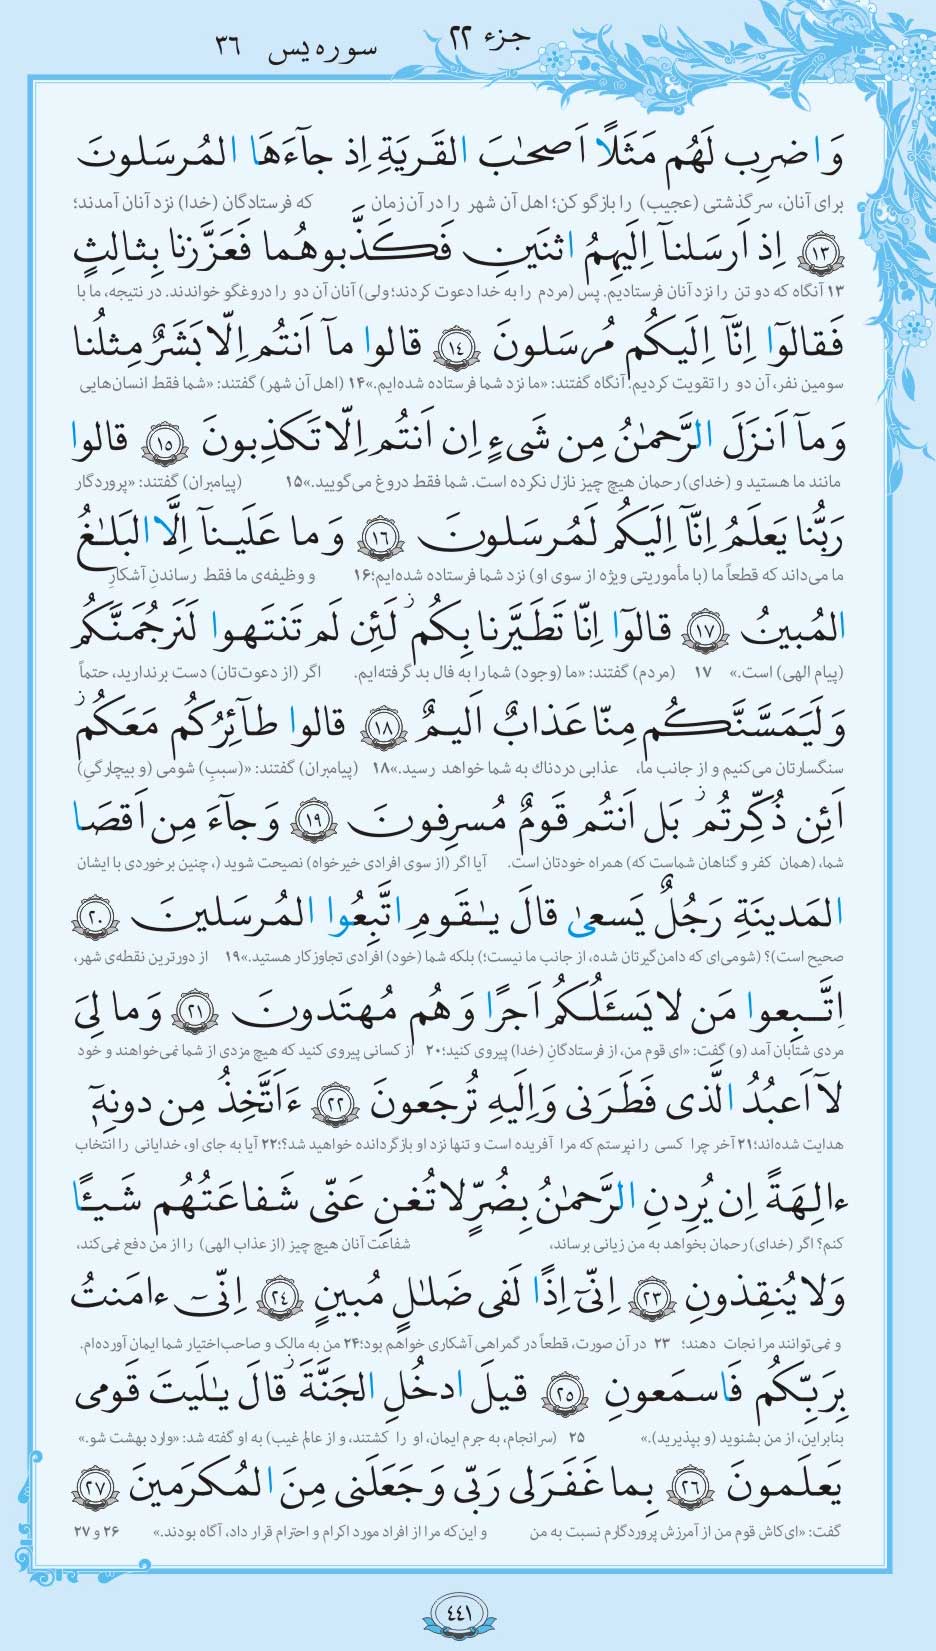 جزء ۲۲ سوره یس ۳۶
وَاضرِب لَهُم مَثَلًا اَصحٰبَ القَریَةِ اِذ جآءَهَا المُرسَلونَ
برای آنان، سرگذشتی (عجیب) را بازگو کن؛ اهل آن شهر را در آن زمان که فرستادگان (خدا) نزد آنان آمدند؛
﴿۱۳﴾ اِذ اَرسَلنآ اِلَیهِمُ اثنَینِ فَکَذَّبوهُما فَعَزَّزنا بِثالِثٍ
۱۳ آنگاه که دو تن را نزد آنان فرستادیم. پس (مردم را به خدا دعوت کردند؛ ولی) آنان آن دو را دروغگو خواندند. در نتیجه، ما با
فَقالوٓا اِنّآ اِلَیکُم مُرسَلونَ ﴿۱٤﴾ قالوا مآ اَنتُم اِلّا بَشَرٌ مِثلُنا
سومین نفر، آن دو را تقویت کردیم. آنگاه گفتند: «ما نزد شما فرستاده شده‌ایم.»۱۴ (اهل آن شهر) گفتند: «شما فقط انسان‌هایی
وَمآ اَنزَلَ الرَّحمٰنُ مِن شَیءٍ اِن اَنتُم اِلّا تَکذِبونَ ﴿۱٥﴾ قالوا
مانند ما هستید و (خدای) رحمان هیچ چیز نازل نکرده است. شما فقط دروغ می‌گویید.»۱۵ (پیامبران) گفتند: «پروردگار
رَبُّنا یَعلَمُ اِنّآ اِلَیکُم لَمُرسَلونَ ﴿۱٦﴾ وَما عَلَینآ اِلَّا البَلٰغُ
ما می‌داند که قطعاً ما (با مأموریتی ویژه از سوی او) نزد شما فرستاده شده‌ایم؛۱۶ و وظیفه‌ی ما فقط رساندنِ آشکارِ
المُبینُ ﴿۱۷﴾ قالوٓا اِنّا تَطَیَّرنا بِکُم ز لَئِن لَم تَنتَهوا لَنَرجُمَنَّکُم
(پیام الهی) است.» ۱۷ (مردم) گفتند: «ما (وجود) شما را به فال بد گرفته‌ایم. اگر (از دعوت‌تان) دست برندارید، حتماً
وَلَیَمَسَّنَّکُم مِنّا عَذابٌ اَلیمٌ ﴿۱۸﴾ قالوا طآئِرُکُم مَعَکُم ز
سنگسارتان می‌کنیم و از جانب ما، عذابی دردناک به شما خواهد رسید.»۱۸ (پیامبران) گفتند: «(سببِ) شومی (و بیچارگیِ)
اَئِن ذُکِّرتُم ز بَل اَنتُم قَومٌ مُسرِفونَ ﴿۱۹﴾ وَجآءَ مِن اَقصَا
شما، (همان کفر و گناهان شماست که) همراه خودتان است. آیا اگر (از سوی افرادی خیرخواه) نصیحت شوید (، چنین برخوردی با ایشان
المَدینَةِ رَجُلٌ یَسعیٰ قالَ یٰقَومِ اتَّبِعُوا المُرسَلینَ ﴿۲۰﴾
صحیح است)؟ (شومی‌ای که دامن‌گیرتان شده، از جانب ما نیست؛) بلکه شما (خود) افرادی تجاوزکار هستید.»۱۹ از دورترین نقطه‌ی شهر،
اِتَّبِعوا مَن لا یَسـَٔلُکُم اَجرًا وَهُم مُهتَدونَ ﴿۲۱﴾ وَما لِیَ
مردی شتابان آمد (و) گفت: «ای قوم من، از فرستادگانِ (خدا) پیروی کنید؛۲۰ از کسانی پیروی کنید که هیچ مزدی از شما نمی‌خواهند و خود
لآ اَعبُدُ الَّذی فَطَرَنی وَاِلَیهِ تُرجَعونَ ﴿۲۲﴾ ءَاَتَّخِذُ مِن دونِهٖٓ
هدایت شده‌اند؛۲۱ آخر چرا کسی را نپرستم که مرا آفریده است و تنها نزد او بازگردانده خواهید شد؟!؛۲۲ آیا به جای او، خدایانی را انتخاب
ءالِهَةً اِن یُرِدنِ الرَّحمٰنُ بِضُرٍّ لا تُغنِ عَنّی شَفاعَتُهُم شَیـًٔا
کنم؟ اگر (خدای) رحمان بخواهد به من زیانی برساند، شفاعت آنان هیچ چیز (از عذاب الهی) را از من دفع نمی‌کند،
وَلا یُنقِذونِ ﴿۲۳﴾ اِنّیٓ اِذًا لَفی ضَلٰلٍ مُبینٍ ﴿۲٤﴾ اِنّیٓ ءامَنتُ
و نمی‌توانند مرا نجات دهند؛ ۲۳ در آن صورت، قطعاً در گمراهی آشکاری خواهم بود؛۲۴ من به مالک و صاحب‌اختیار شما ایمان آورده‌ام.
بِرَبِّکُم فَاسمَعونِ ﴿۲٥﴾ قیلَ ادخُلِ الجَنَّةَ ز قالَ یٰلَیتَ قَومی
بنابراین، از من بشنوید (و بپذیرید).» ۲۵ (سرانجام، به جرم ایمان، او را کشتند، و از عالم غیب) به او گفته شد: «وارد بهشت شو.»
یَعلَمونَ ﴿۲٦﴾ بِما غَفَرَلی رَبّی وَجَعَلَنی مِنَ المُکرَمینَ ﴿۲۷﴾
گفت: «ای‌کاش قوم من از آمرزش پروردگارم نسبت به من و این‌که مرا از افراد مورد اکرام و احترام قرار داد، آگاه بودند.» ۲۶ و ۲۷
٤٤۱